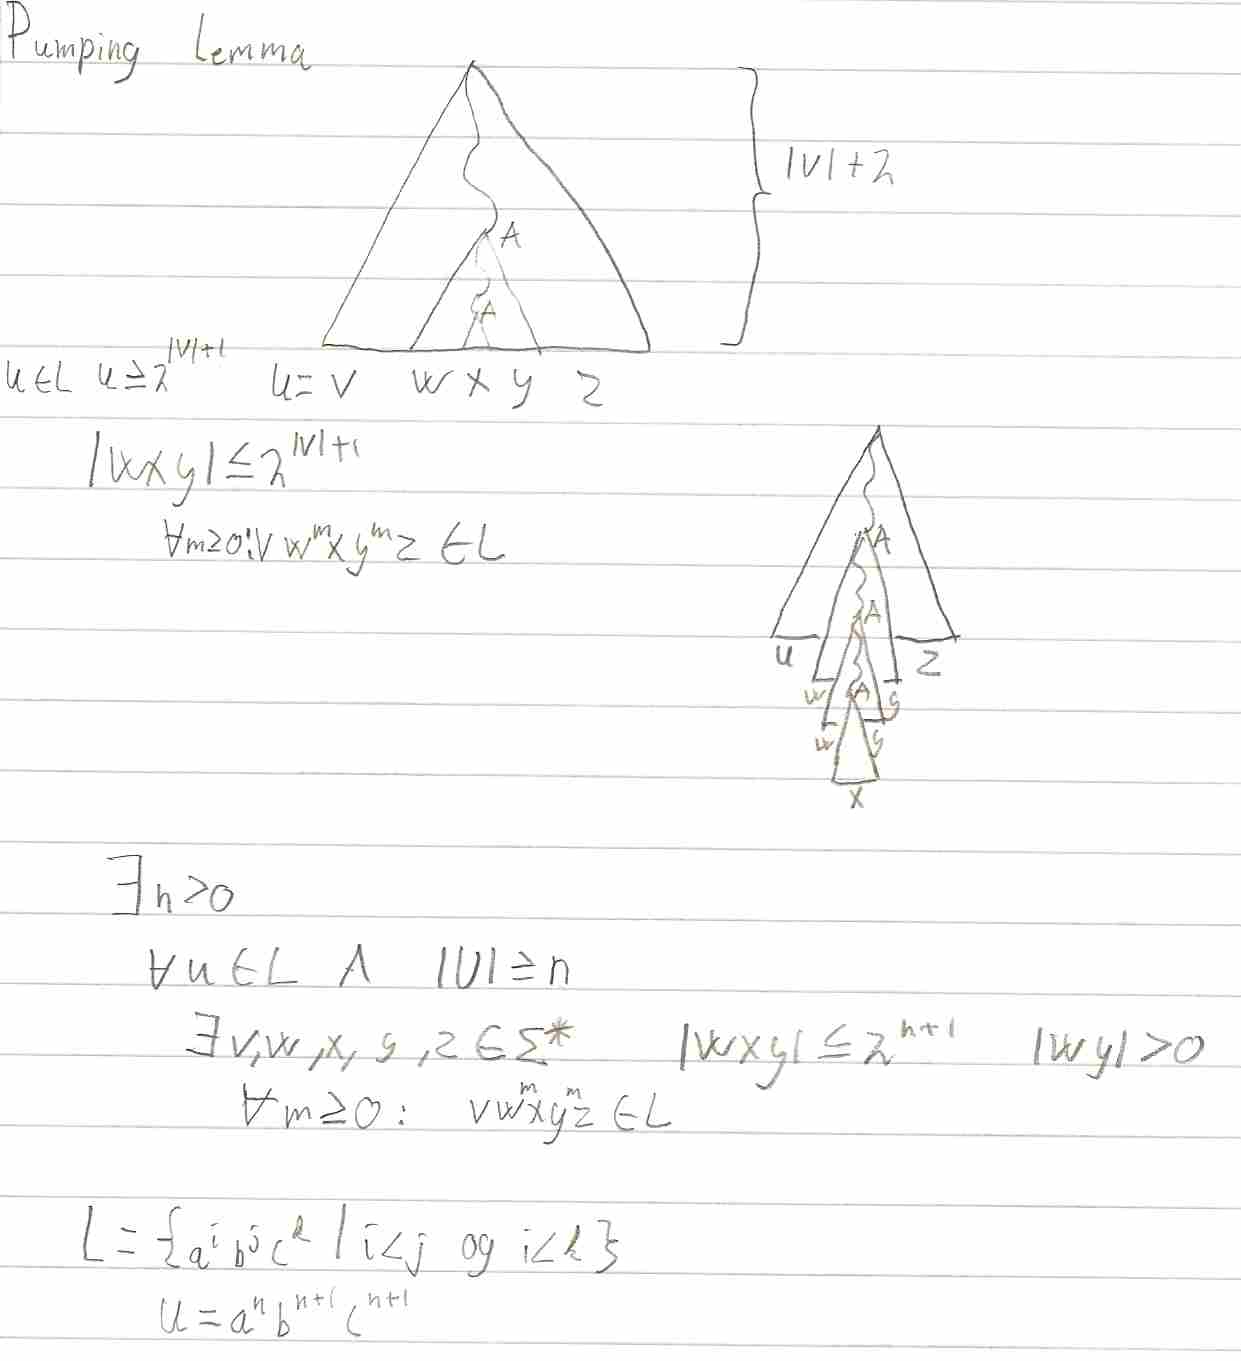 Pumping Lemma
|V|+2
A
A
u∈L u≥2^{|V|+1} u= v w x y z
|wxy|≤2^{|V|+1}
∀m≥0: v w^m x y^m z ∈L
A
A
u z
w A y
w y
x
∃n>0
∀u∈L ∧ |U|≥n
∃v,w,x,y,z∈Σ* |wxy|≤2^{n+1} |wy|>0
∀m≥0: vw^m x y^m z ∈L
L={a^i b^j c^k | i<j og i<k}
u=a^n b^{n+1} c^{n+1}